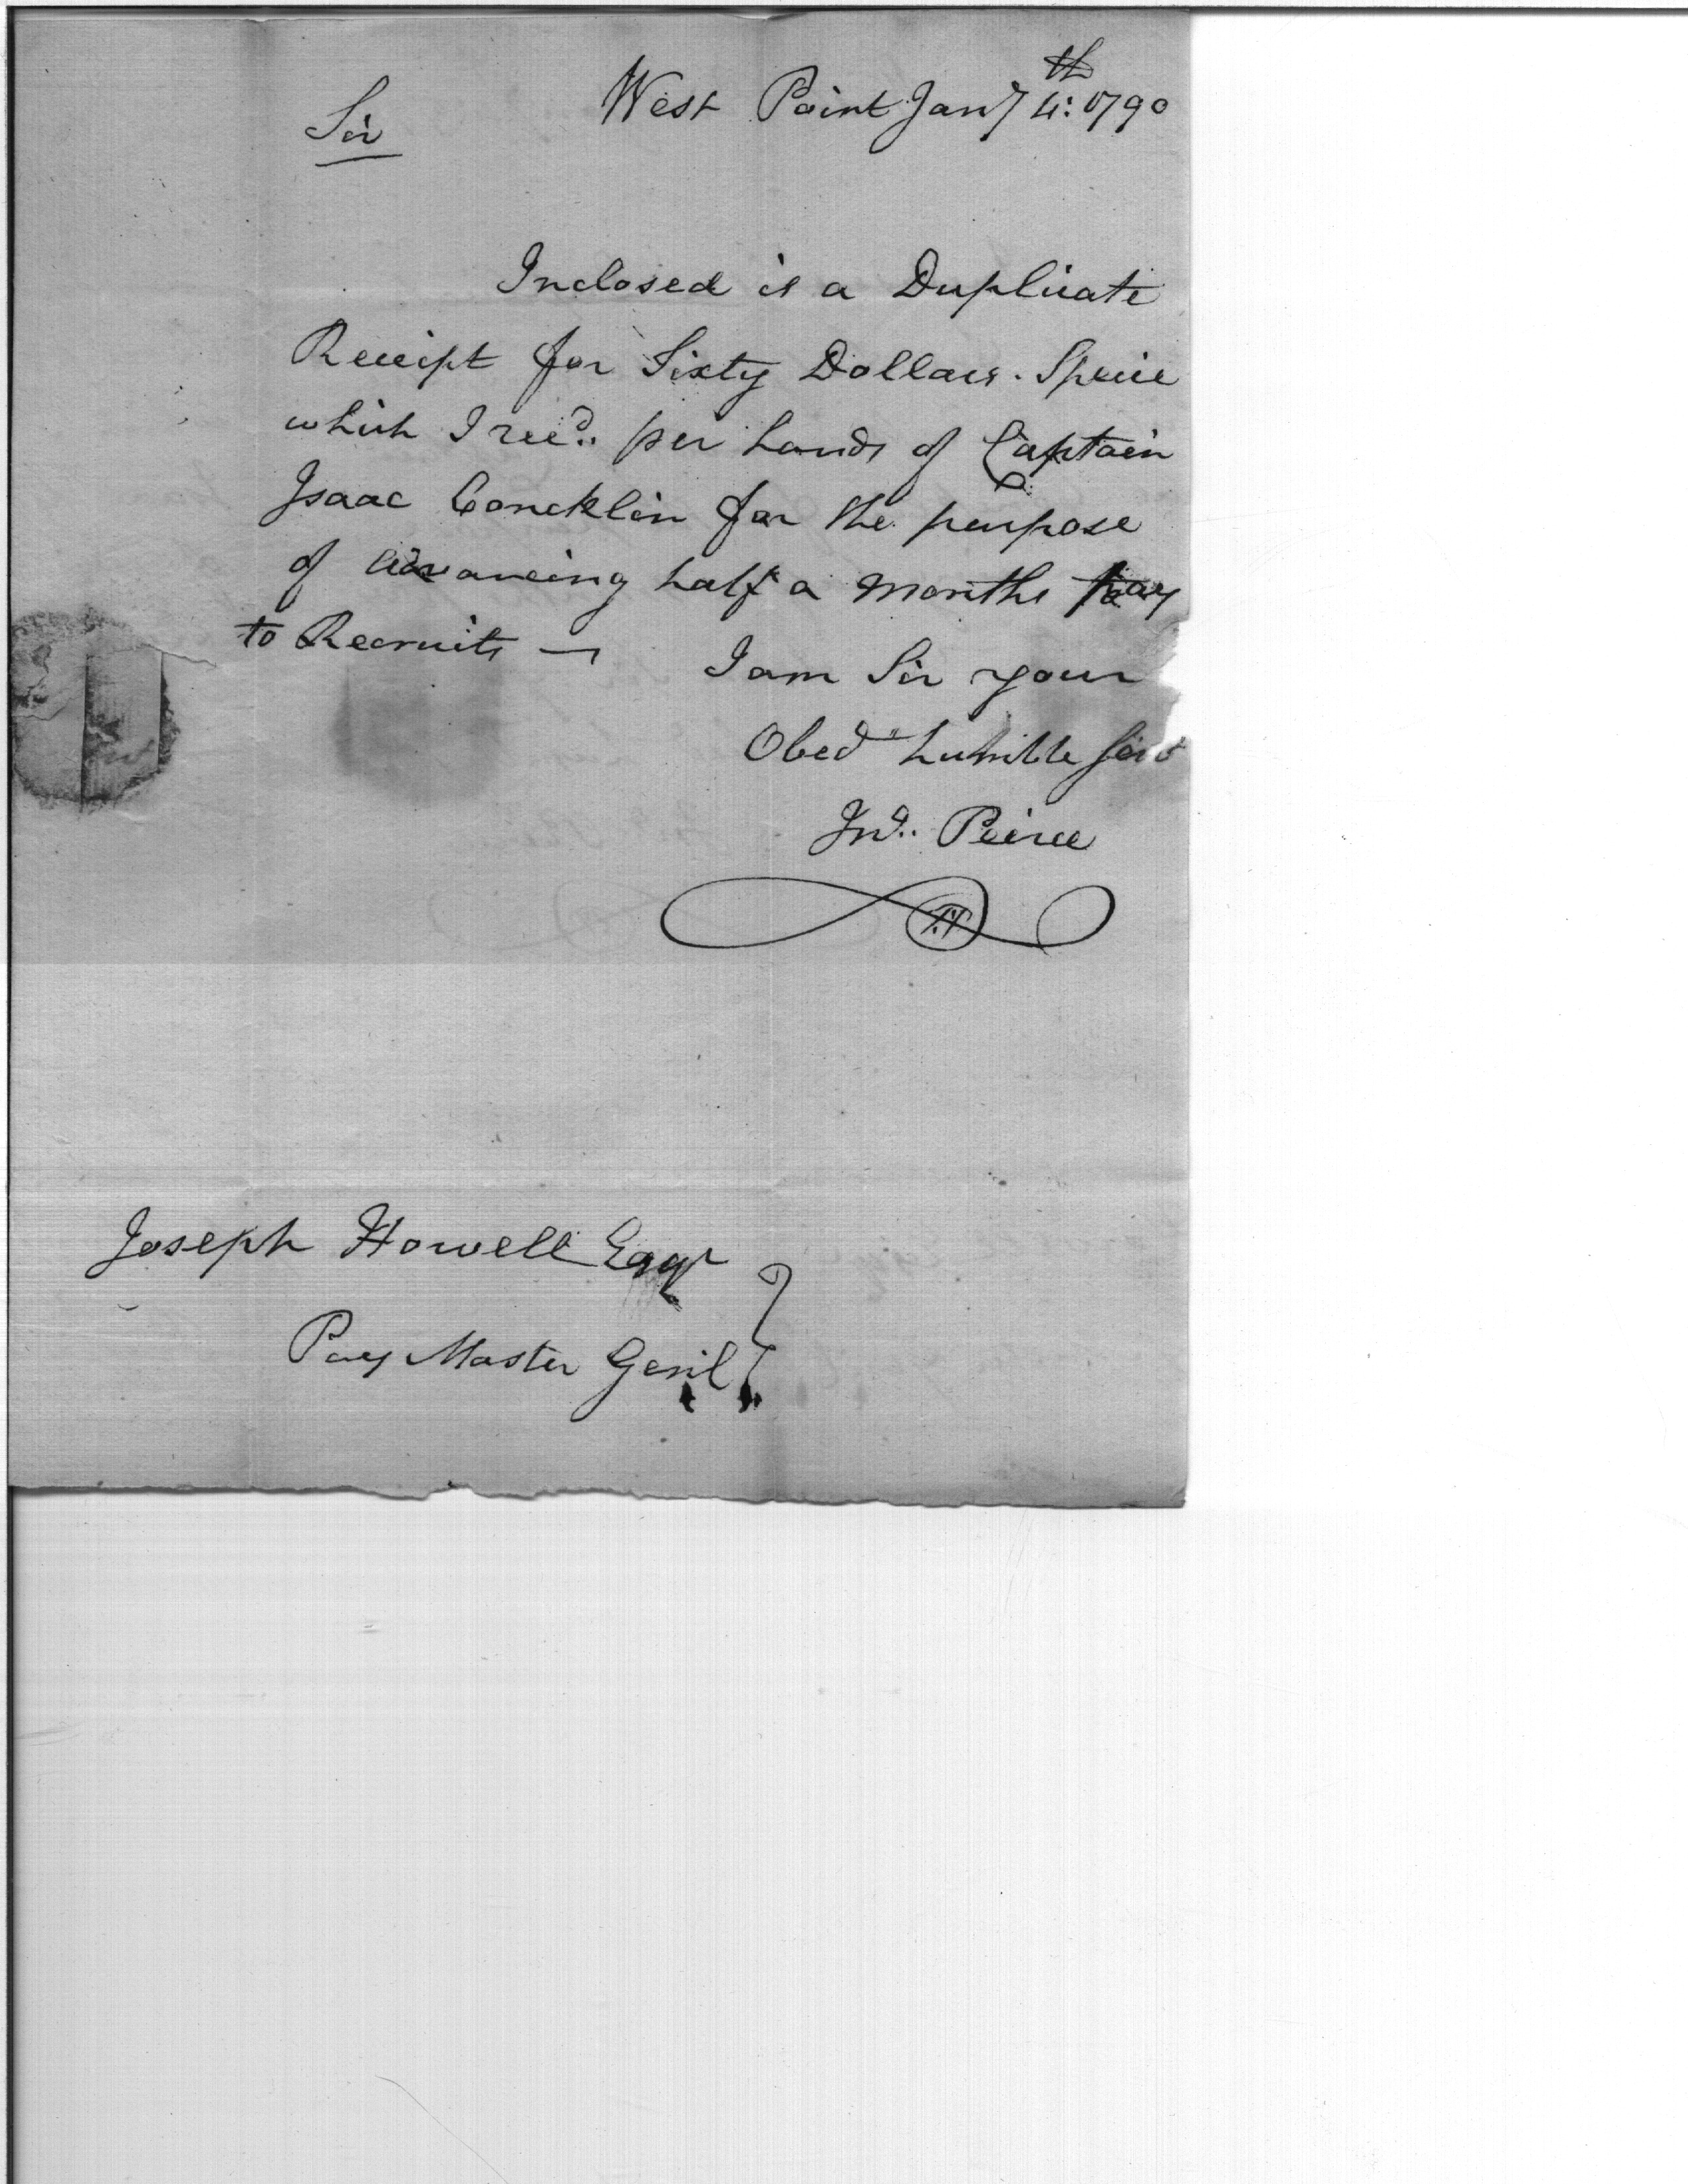 West Point Jany 4th: 1790
Sir
Inclosed is a Duplicate
Receipt for Sixty Dollars. Specie
which I recd.. per hands of Captain
Isaac Concklin for the purpose
of advancing half a months Pay
to Recruits —
I am Sir your
Obedt humble Servt
Jno.. Peirce
Joseph Howell Esqr
Pay Master Genl